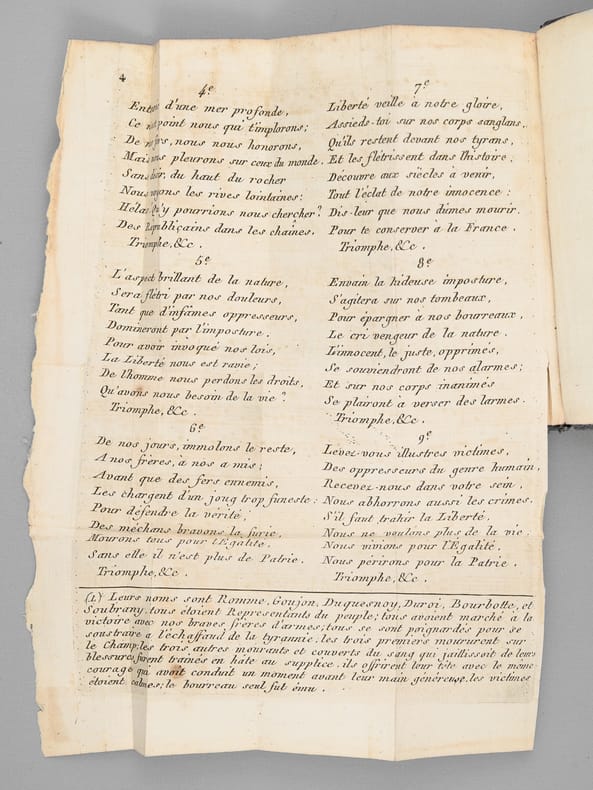 4
4e
Entouré d'une mer profonde,
Ce n'est point nous qui t'implorons;
De nos fers, nous nous honorons,
Mais nous pleurons sur ceux du monde.
Sans du haut du rocher
Nous voyons les rives lointaines:
Hélas! Qu'y pourrions nous chercher?
Des Républicains dans les chaines.
Triomphe, &c.
5e
L'aspect brillant de la nature,
Sera flétri par nos douleurs,
Tant que d'infâmes oppresseurs,
Domineront par l'imposture.
Pour avoir invoqué nos lois,
La Liberté nous est ravie;
De l'homme nous perdons les droits,
Qu'avons nous besoin de la vie?
Triomphe, &c.
6e
De nos jours, immolons le reste,
A nos frères, à nos amis;
Avant que des fers ennemis,
Les chargent d'un joug trop funeste:
Pour défendre la vérité,
Des méchans bravons la furie,
Mourons tous pour l'Égalité.
Sans elle il n'est plus de Patrie.
Triomphe, &c.
7e
Liberté veille à notre gloire,
Assieds-toi sur nos corps sanglans,
Qu'ils restent devant nos tyrans,
Et les flétrissent dans l'histoire.
Découvre aux siècles à venir,
Tout l'éclat de notre innocence:
Dis-leur que nous dûmes mourir,
Pour te conserver à la France.
Triomphe, &c.
8e
Envain la hideuse imposture,
S'agitera sur nos tombeaux,
Pour épargner à nos bourreaux,
Le cri vengeur de la nature.
L'innocent, le juste, opprimés,
Se souviendront de nos alarmes;
Et sur nos corps inanimés
Se plairont à verser des larmes.
Triomphe, &c.
9e
Levez-vous illustres victimes,
Des oppresseurs du genre humain,
Recevez-nous dans votre sein,
Nous abhorrons aussi les crimes.
S'il faut trahir la Liberté,
Nous ne voulons plus de la vie:
Nous vivions pour l'Égalité,
Nous périrons pour la Patrie.
Triomphe, &c.
(1.) Leurs noms sont Romme, Goujon, Duquesnoy, Duroi, Bourbotte, et
Soubrany, tous étoient Représentants du peuple; tous avoient marché à la
victoire avec nos braves frères d'armes; tous se sont poignardés pour se
soustraire à l'échaffaud de la tyrannie, les trois premiers moururent sur
le Champ; les trois autres mourants et couverts du sang qui jaillissoit de leurs
blessures, furent trainés en hâte au supplice, ils offrirent leur tête avec le même
courage qui avoit conduit un moment avant leur main généreuse, les victimes
étoient calmes; le bourreau seul fut ému.